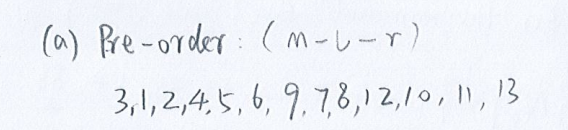 (a) Pre-order: (m-l-r)
3,1,2,4,5,6,9,7,8,12,10,11,13